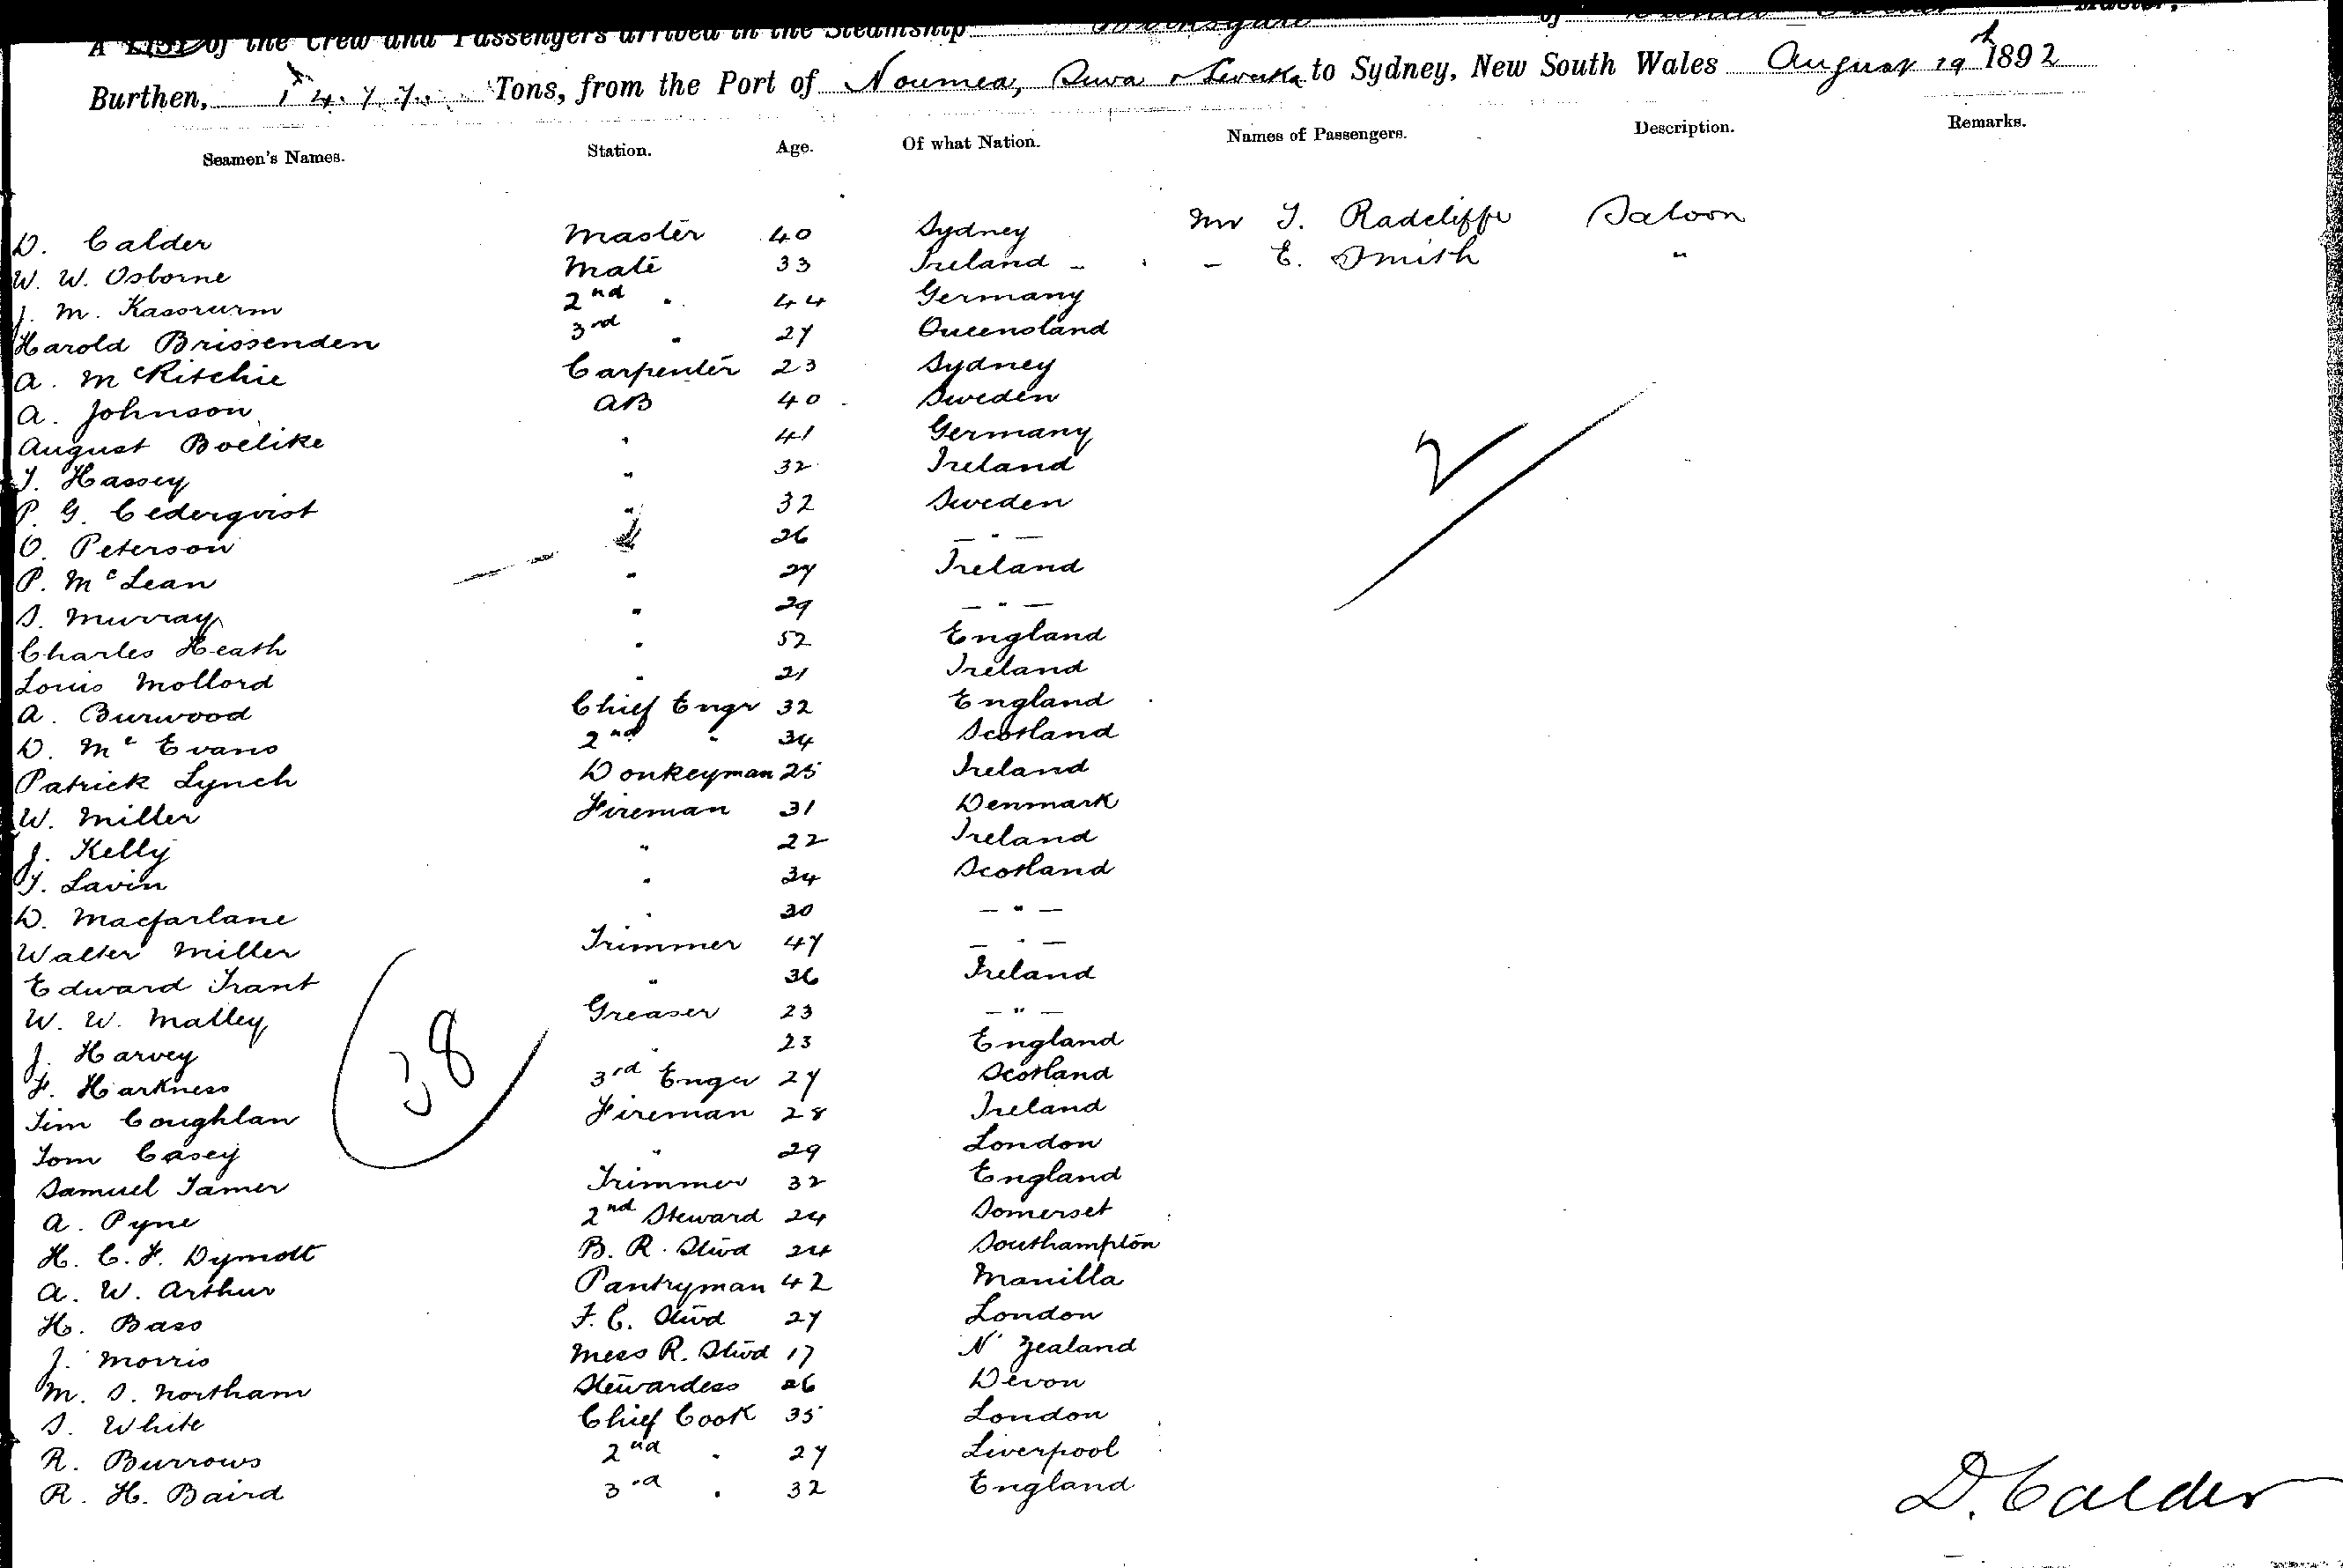 A LIST of the Crew and Passengers arrived in the Steamship of Master,
Burthen, 1477 Tons, from the Port of Noumea, Suva & Levuka to Sydney, New South Wales August 19th 1892
Seamen's Names. Station. Age. Of what Nation. Names of Passengers. Description. Remarks.
D. Calder Master 40 Sydney Mr T. Radcliffe Saloon
W. W. Osborne Mate 33 Ireland - E. Smith "
J. M. Kassrurm 2nd " 44 Germany
Harold Brissenden 3rd " 27 Queensland
A. McRitchie Carpenter 23 Sydney
A. Johnson AB 40 Sweden
August Boelike " 41 Germany
T. Hassey " 32 Ireland
P. G. Cederqvist " 32 Sweden
O. Peterson " 26 — " —
P. McLean " 27 Ireland
S. Murray " 29 — " —
Charles Heath " 52 England
Louis Mollord " 21 Ireland
A. Burwood Chief Engr 32 England
D. Mc Evans 2nd " 34 Scotland
Patrick Lynch Donkeyman 25 Ireland
W. Miller Fireman 31 Denmark
J. Kelly " 22 Ireland
T. Lavin " 34 Scotland
D. Macfarlane " 30 — " —
Walter Miller Trimmer 47 — " —
Edward Trant " 36 Ireland
W. W. Malley Greaser 23 — " —
J. Harvey " 23 England
F. Harkness 3rd Enger 27 Scotland
Tim Coughlan Fireman 28 Ireland
Tom Casey " 29 London
Samuel Tamer Trimmer 32 England
A. Pyne 2nd Steward 24 Somerset
H. C. F. Dymott B. R. Stwd 24 Southampton
A. W. Arthur Pantryman 42 Manilla
H. Bass F. C. Stwd 27 London
J. Morris Mess R. Stwd 17 N Zealand
M. S. Northam Stewardess 26 Devon
S. White Chief Cook 35 London
R. Burrows 2nd " 27 Liverpool
R. H. Baird 3rd " 32 England
2
38
D. Calder